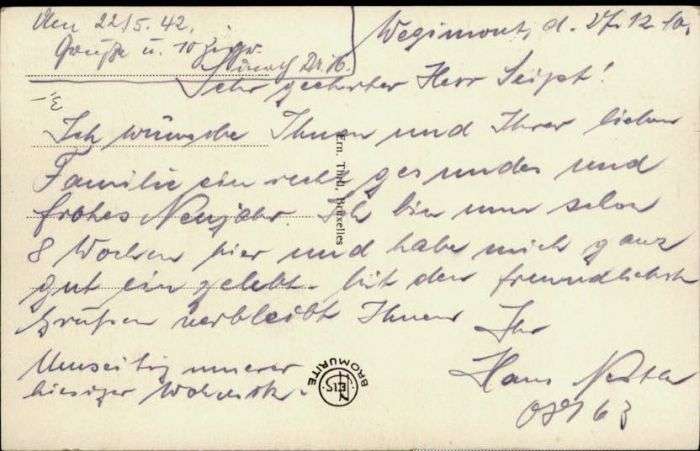 22/5. 42.
Grüße u. 10
Wegimont, d. 27.12.40.
Sehr geehrter Herr Seipt!
Ich wünsche Ihnen und Ihrer lieben
Familie ein recht gesundes und
frohes Neujahr. Ich bin nun schon
8 Wochen hier und habe mich ganz
gut eingelebt. Mit den freundlichsten
Grüßen verbleibt Ihnen Ihr
Hans
Umseitig unserer
hiesiger
Ern. Thill, Bruxelles
BROMURITE